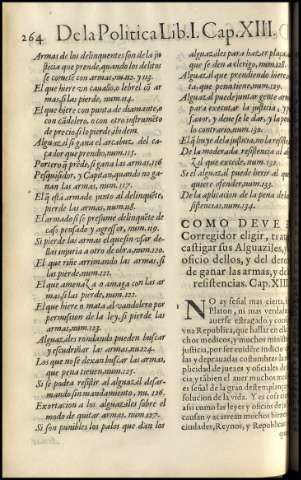 264 De la Politica Lib. I. Cap. XIII.
Armas de los delinquentes son de la ju
sticia que prende, quando los delitos
se comete con armas, num. 112. y 113.
El que hiere vn cauallo, o lebrel cõ ar
mas, si las pierde, num. 114.
El que hiere con punta de diamante, o
con cãdelero, o con otro instrumẽto
de precio si lo pierde, ibidem.
Alguazil si gana el arcabuz del ca
çador que prendio, num. 115.
Portero q̃ prẽde, si gana las armas, 116
Pesquisidor, y Capitan, quando no ga-
nan las armas, num. 117.
El q̃ esta armado junto al delinquẽte,
pierde las armas, num. 118.
El armado si se presume delinquẽte de
caso pensado, y agressor, num. 119.
Si pierde las armas el que sin vsar de-
llas injuria a otro de obra, num. 120.
El que riñe arrimando las armas, si
las pierde, num. 121.
El que amenaZa o amaga con las ar
mas, si las pierde, num. 122.
El que hiere o mata al vandolero por
permission de la ley, si pierde las
armas, num. 123.
Alguaziles rondando pueden buscar
y escudriñar las armas, nu. 124.
Los que no se dexan buscar las armas,
que pena tienen, num. 125.
Si se podra resistir al alguazil desar-
mando sin mandamiento, nu. 126.
Exortacion a los alguaziles sobre el
modo de quitar armas, num. 127.
Si son punibles los palos que dan los
alguaziles para hazer plaça,
que se den a clerigo, num. 128.
Alguazil que prendiendo hiere,
ta, que pena tiene, num. 129.
Alguazil puede juntar gente arm
para executar la justicia, y
favor, y deue se le dar, y la pe
lo contrario, num. 130.
El q̃ huye de la justicia, no la resiste
De la moderada resistencia al al
Zil que excede, num. 132.
Si el alguazil puede herir al que
quiere ofender, num. 133.
De la aplicacion de la pena de la
sistencia, num. 134.
COMO DEVE E
Corregidor eligir, trat
castigar sus Alguaziles,
oficio dellos, y del dere
de ganar las armas, y de
resistencias. Cap. XIII
NO ay señal mas cierta,
Platon, ni mas verdade
auerse estragado y corro
vna Republica, que hallar en ella
chos medicos, y muchos minist
justicia, por ser euidẽte indicio
las y deprauadas costumbres la
plicidad de juezes y oficiales de
cia y tãbien el auer muchos me
es señal de la gran destemplança
solucion de la vida. Y es cosa ci
assi como las leyes y oficios de ju
causan y acarrean muchos biene
ciudades, Reynos, y Republicas
que